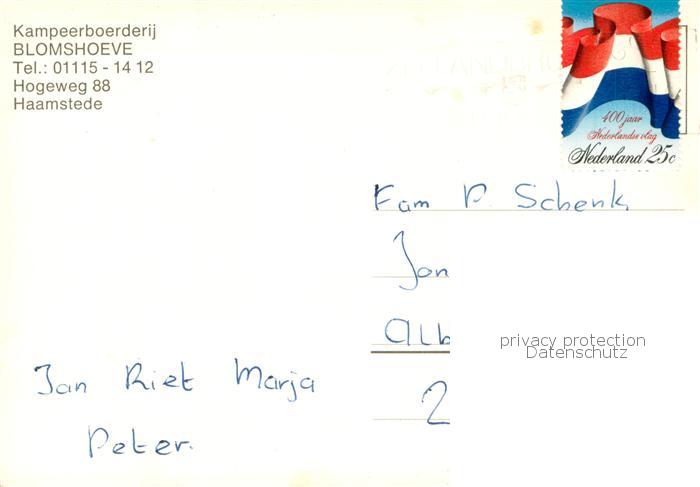 Kampeerboerderij
BLOMSHOEVE
Tel.: 01115 - 14 12
Hogeweg 88
Haamstede
400 jaar
Nederlandse vlag
Nederland 25c
Fam P. Schenk
Jan
Alb
2
privacy protection
Datenschutz
Jan Riet Marja
Peter.